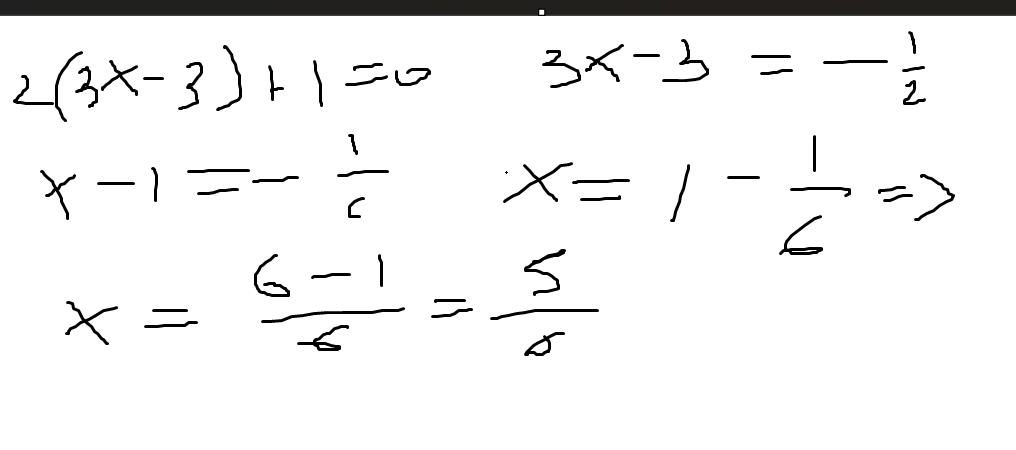 2(3x-3)+1=0 3x-3=-1/2
x-1=-1/6 x=1-1/6=>
x=(6-1)/6=5/6